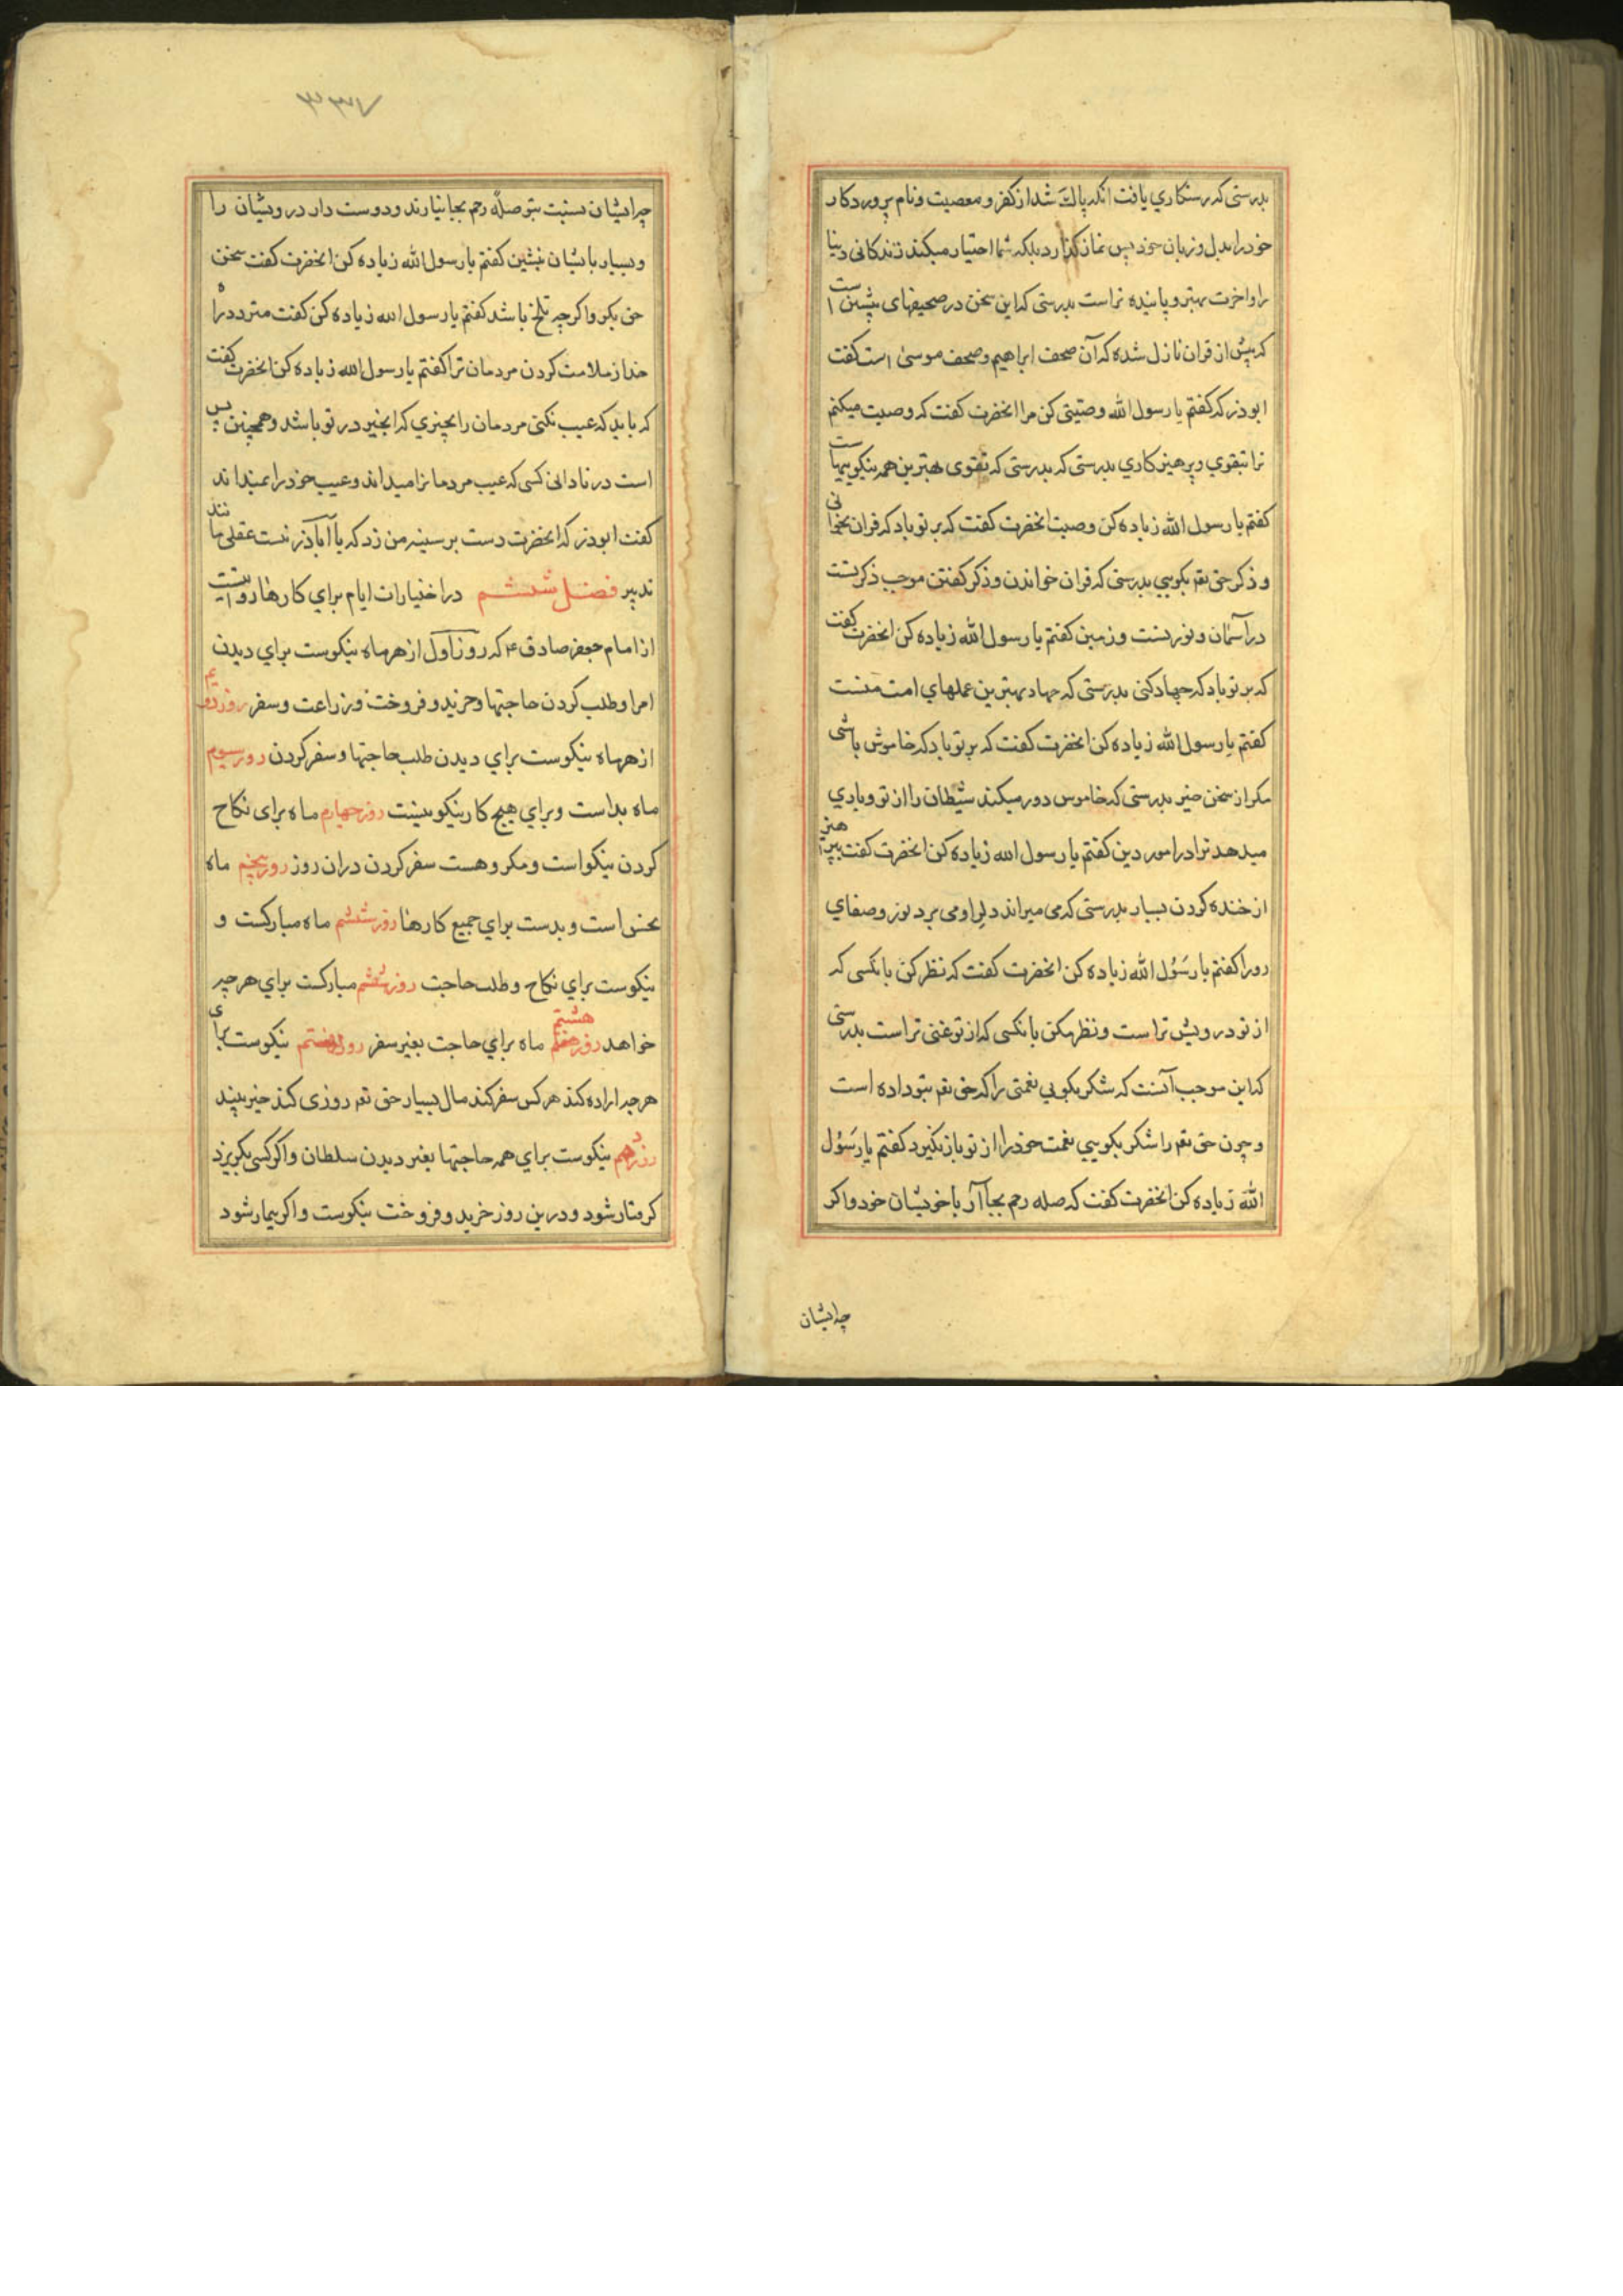 بدرستی که رستکاری یافت انکه پاک شد از کفر و معصیت و نام پروردکار
خود را بدل و زبان خود پس نماز کذارد بلکه شما اختیار میکنید زندکانی دنیا
را و اخرت بهتر و پاینده تر است بدرستی که این سخن در صحیفهای پیشین است
که پیش از قران نازل شده که آن صحف ابراهیم و صحف موسی است کفت
ابوذر که کفتم یا رسول الله وصیتی کن مرا انحضرت کفت که وصیت میکنم
ترا بتقوی و پرهیزکاری بدرستی که بدرستی که تقوی بهترین همه نیکوییهاست
کفتم یا رسول الله زیاده کن وصیت انحضرت کفت که بر تو باد که قران بخوانی
و ذکر حق تعم بکویی بدرستی که قران خواندن و ذکر کفتن موجب ذکر تست
در آسمان و نور تست و زمین کفتم یا رسول الله زیاده کن انحضرت کفت
که بر تو باد که جهاد کنی بدرستی که جهاد بهترین عملهای امت منست
کفتم یا رسول الله زیاده کن انحضرت کفت که بر تو باد که خاموش باشی
مکر از سخن خیر بدرستی که خاموس دور میکند شیطان را از تو و یاری
میدهد ترا در امور دین کفتم یا رسول الله زیاده کن انحضرت کفت بپرهیز
از خنده کردن بسیار بدرستی که می میراند دلرا و می برد نور و صفای
رورا کفتم یا رسول الله زیاده کن انحضرت کفت که نظر کن بانکسی که
از تو درویش تر است و نظر مکن بانکسی که از تو غنی تر است بدرستی
که این موجب آنست که شکر بکویی نعمتی را که حق تعم بتو داده است
و چون حق تعم را شکر بکویی نعمت خود را از تو باز نکیرد کفتم یا رسول
الله زیاده کن انحضرت کفت که صله رحم بجا آر با خویشان خود و اکر
چه ایشان
چه ایشان نسبت بتو صله رحم بجا نیارند و دوست دار درویشان را
و بسیار با ایشان بنشین کفتم یا رسول الله زیاده کن انحضرت کفت سخن
حق بکو و اکرچه تلخ باشد کفتم یا رسول الله زیاده کن کفت مترس در راه
خدا از ملامت کردن مردمان ترا کفتم یا رسول الله زیاده کن انحضرت کفت
که باید که عیب نکنی مردمان را بچیزی که انچیز در تو باشد و همچنین بس
است در نادانی کسی که عیب مردمانرا میداند و عیب خود را نمیداند
کفت ابوذر که انحضرت دست بر سینه من زد که یا آباذر نیست عقلی مانند
تدبیر فصل ششم در اختیارات ایام برای کارها روایتست
از امام جعفر صادق ع که روز آول از هر ماه نیکوست برای دیدن
امرا و طلب کردن حاجتها و خرید و فروخت و زراعت و سفر روز دویم
از هر ماه نیکوست برای دیدن طلب حاجتها و سفر کردن روز سیوم
ماه بد است و برای هیچ کار نیکو نیست روز چهارم ماه برای نکاح
کردن نیکو است و مکروهست سفر کردن در ان روز روز پنجم ماه
نحس است و بدست برای جمیع کارها روز ششم ماه مبارکست و
نیکوست برای نکاح و طلب حاجت روز هفتم مبارکست برای هر چه
خواهد روز هشتم ماه برای حاجت بغیر سفر روز نهم نیکوست برای
هر چه اراده کند هر کس سفر کند مال بسیار حق تعم روزی کند خیر بیند
روز دهم نیکوست برای همه حاجتها بغیر دیدن سلطان و اکر کسی بکریزد
کرفتار شود و در ین روز خرید و فروخت نیکوست و اکر بیمار شود